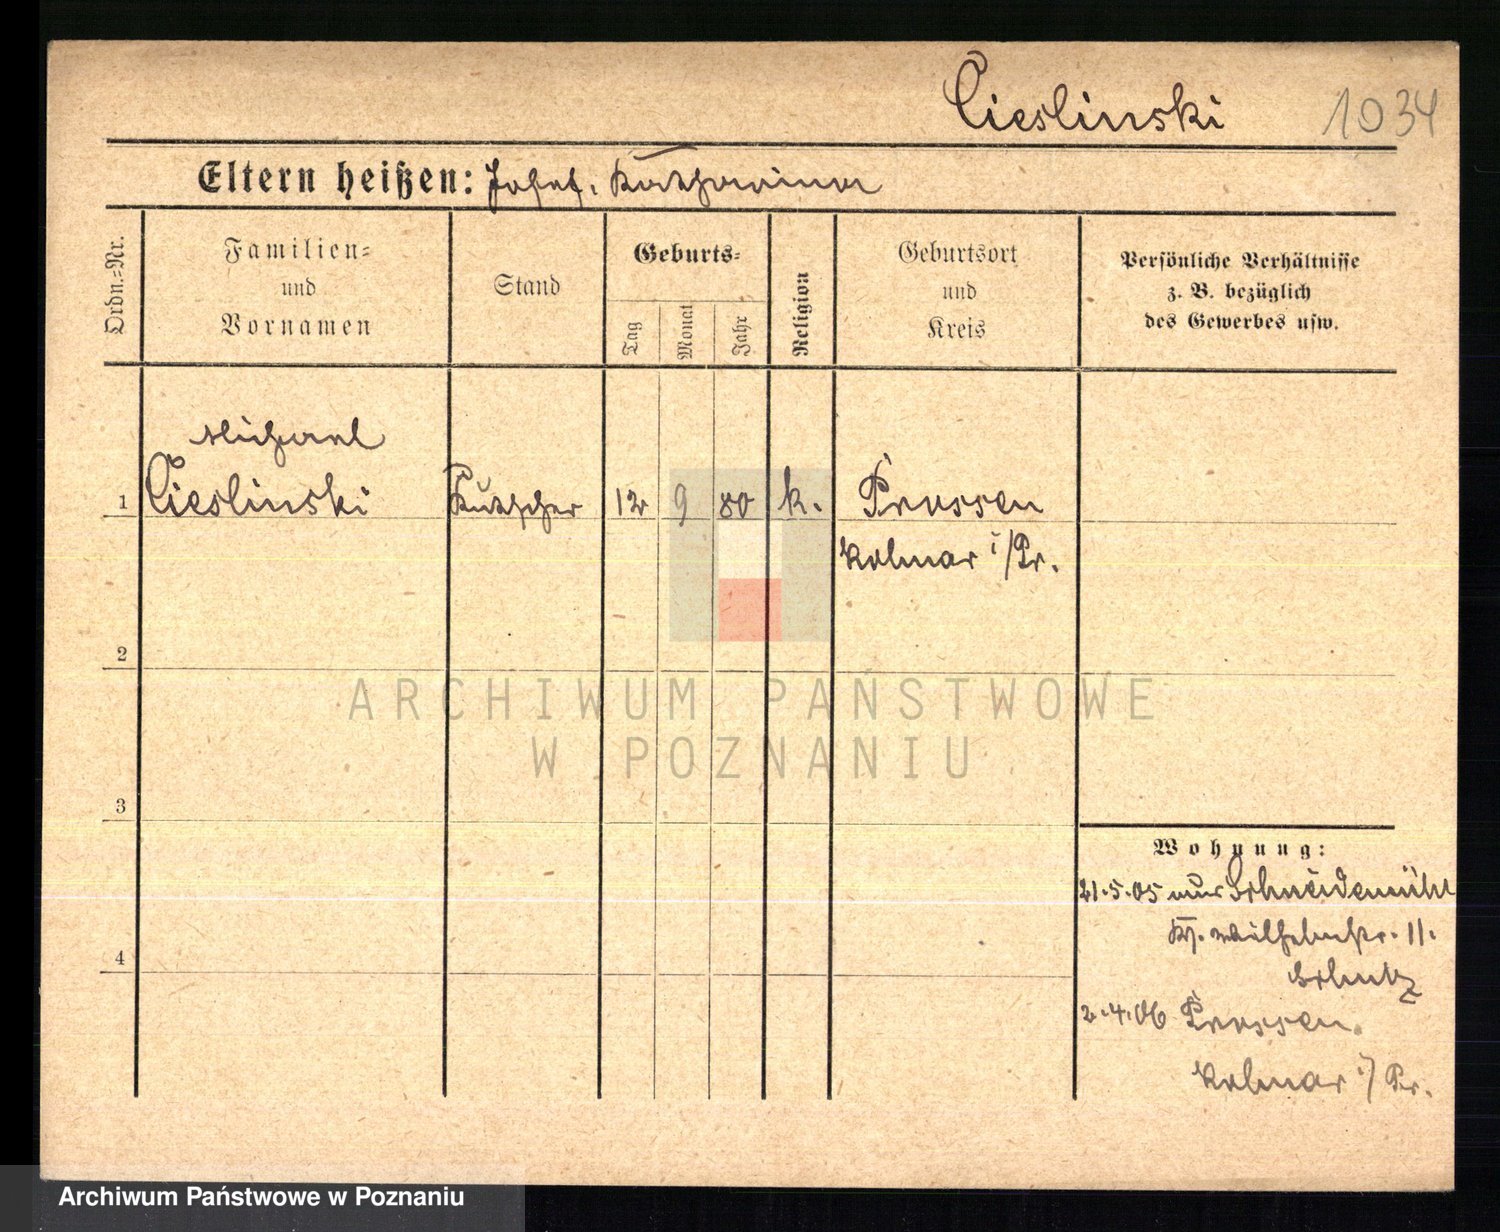 Cieslinski 1034
Eltern heißen: Josef. Katharina
Ordn.=Nr.
Familien=
und
Vornamen
Stand
Geburts=
Tag
Monat
Jahr
Religion
Geburtsort
und
Kreis
Persönliche Verhältnisse
z. B. bezüglich
des Gewerbes usw.
Michael
1 Cieslinski Kutscher 12 9 80 k. Prossen
Kolmar i/Pr.
2
3
4
Wohnung:
21.5.05 aus Schneidemühl
Kl. Wilhelmstr. 11.
2.4.06 Prossen
Kolmar i/Pr.
ARCHIWUM PAŃSTWOWE
W POZNANIU
Archiwum Państwowe w Poznaniu